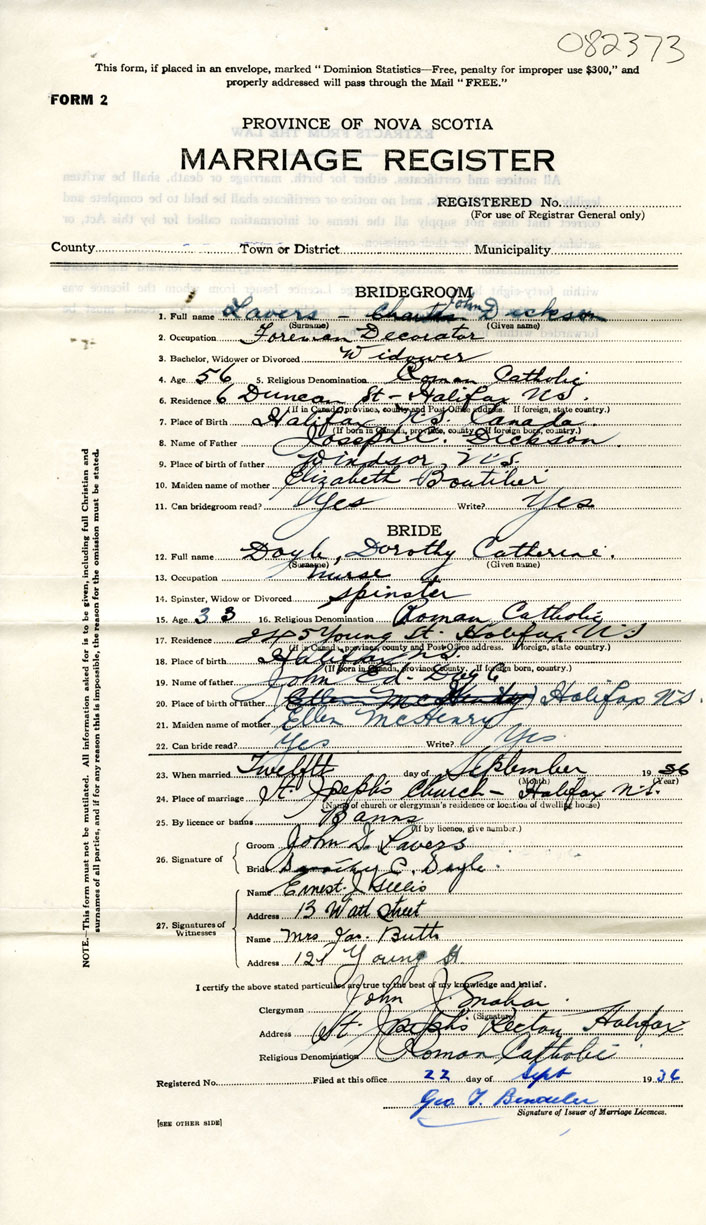 082373
This form, if placed in an envelope, marked "Dominion Statistics—Free, penalty for improper use $300," and
properly addressed will pass through the Mail "FREE."
FORM 2
PROVINCE OF NOVA SCOTIA
MARRIAGE REGISTER
REGISTERED No.
(For use of Registrar General only)
County Town or District Municipality
BRIDEGROOM
1. Full name Lavers - John Dickson
(Surname) (Given name)
2. Occupation Foreman Decorator
3. Bachelor, Widower or Divorced Widower
4. Age 56 5. Religious Denomination Roman Catholic
6. Residence 6 Duncan St - Halifax N.S.
(If in Canada, province, county and Post Office address. If foreign, state country.)
7. Place of Birth Halifax N.S. Canada.
(If born in Canada, province, county. If foreign born, country.)
8. Name of Father Joseph Dickson
9. Place of birth of father Windsor N.S.
10. Maiden name of mother Elizabeth Boutilier
11. Can bridegroom read? Yes Write? Yes
BRIDE
12. Full name Doyle, Dorothy Catherine.
(Surname) (Given name)
13. Occupation nurse
14. Spinster, Widow or Divorced spinster
15. Age 33 16. Religious Denomination Roman Catholic
17. Residence Young St. Halifax N S
(If in Canada, province, county and Post Office address. If foreign, state country.)
18. Place of birth Halifax N.S.
(If born in Canada, province, county. If foreign born, country.)
19. Name of father John Ed-
20. Place of birth of father (Ellen McHenry) Halifax N.S.
21. Maiden name of mother Ellen McHenry
22. Can bride read? Yes Write? Yes.
23. When married Twelfth day of September 19 36
(Month) (Year)
24. Place of marriage St. Joseph's Church - Halifax N.S.
(Name of church or clergyman's residence or location of dwelling house)
25. By licence or banns Banns
(If by licence, give number.)
26. Signature of Groom John D. Lavers
Bride Dorothy C. Doyle.
27. Signatures of Witnesses
Name Ernest J Gillis
Address 13 Watt Street
Name Mrs Jas. Butts
Address 121 Young St.
I certify the above stated particulars are true to the best of my knowledge and belief.
Clergyman John J.
(Signature)
Address St. Joseph's Halifax
Religious Denomination Roman Catholic
Registered No. Filed at this office 22 day of Sept 19 36
Geo T.
Signature of Issuer of Marriage Licences.
[SEE OTHER SIDE]
NOTE.—This form must not be mutilated. All information asked for is to be given, including full Christian and
surnames of all parties, and if for any reason this is impossible, the reason for the omission must be stated.